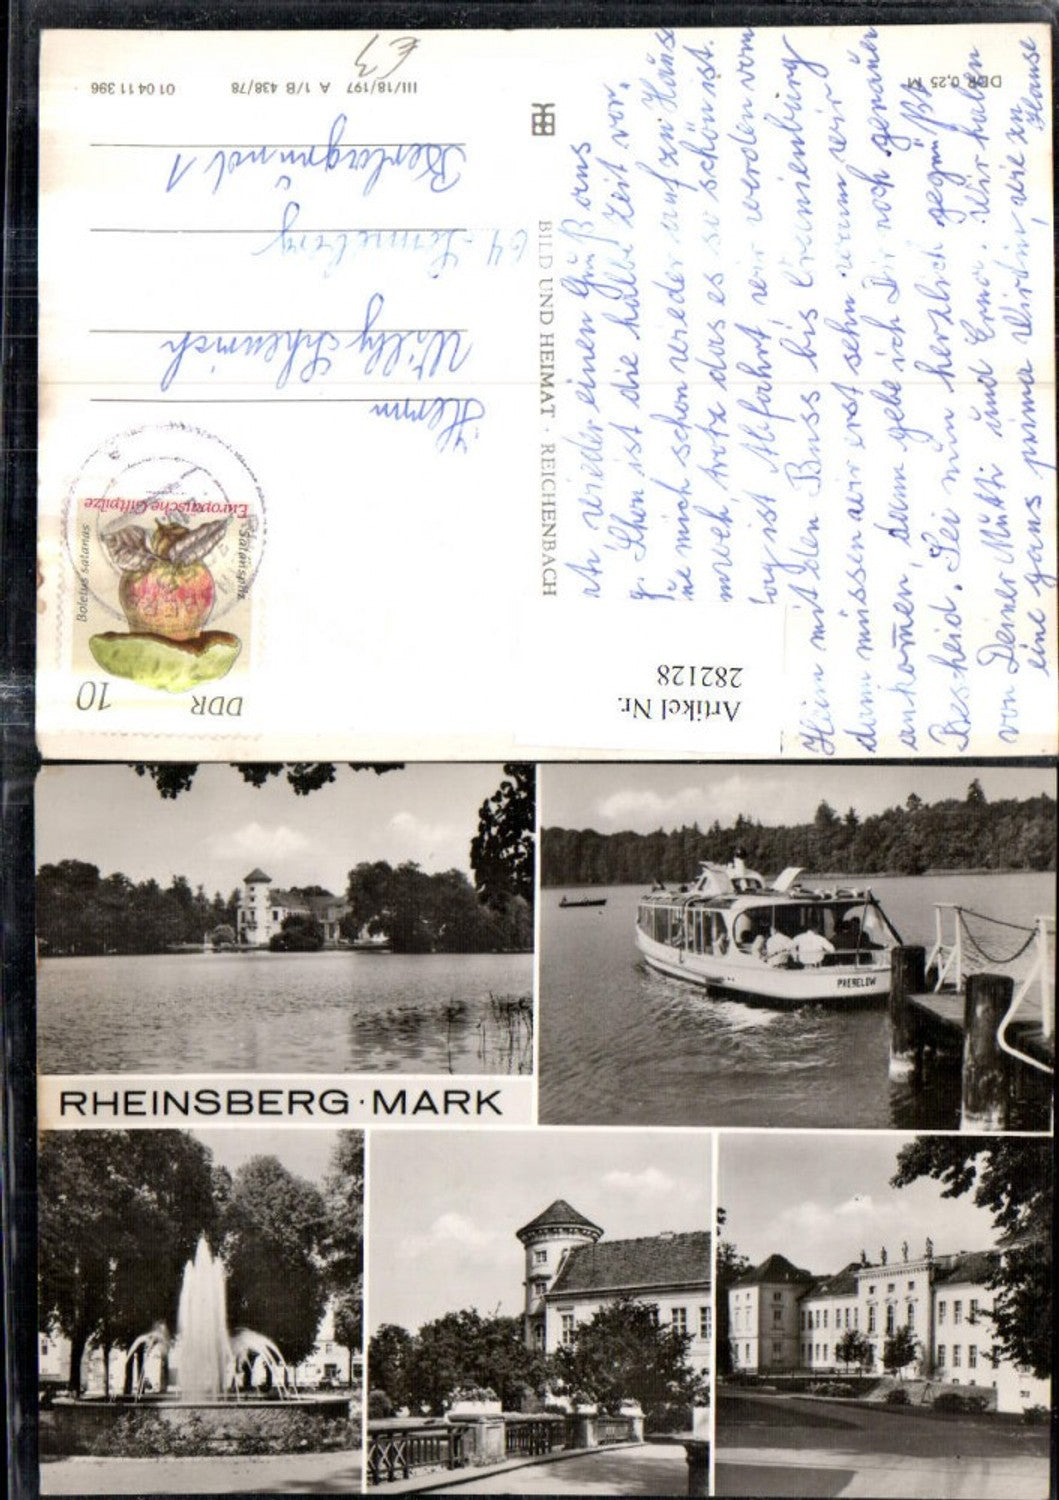 DDR 0,25 M
III/18/197 A 1/B 438/78
01 04 11 396
€ 3
BILD UND HEIMAT · REICHENBACH
ch wieder einen Gruß aus
g. Schon ist die halbe Zeit vor.
ne mich schon wieder auf zu Hause
mich, trotz das es so schön ist.
tag ist Abfahrt, wir werden vom
Heim mit den Buss bis Oranienburg
dann müssen wir erst sehn wann wir
ankommen, dann gebe ich Dir noch genauer
Bescheid. Sei nun herzlich gegrüßt
von Deiner Mutti und Erna. Wir haben
eine ganz prima Wirtin, wie zu
Hause
Herrn
Willy
64 Sonneberg
1
Artikel Nr.
282128
DDR
10
Satanspilz
Boletus satanas
Europäische Giftpilze
PREBELOW
RHEINSBERG · MARK